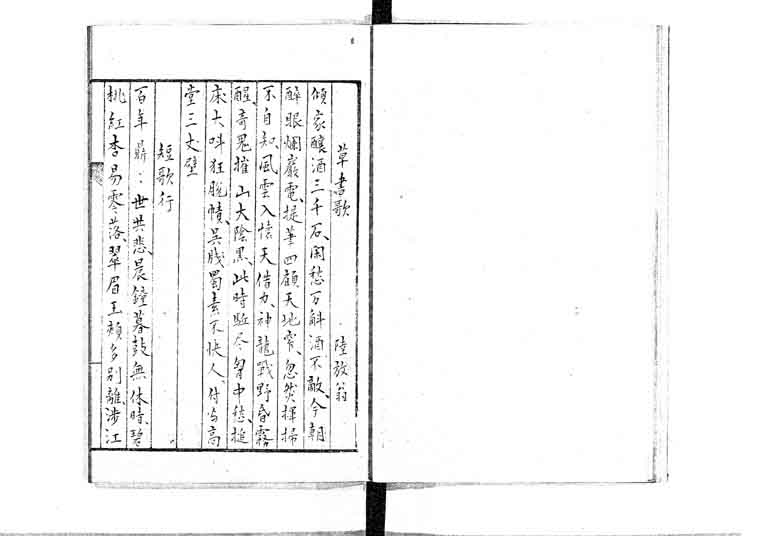 草書歌 陸放翁
傾家釀酒三千石、閑愁万斛酒不敵、今朝
醉眼爛巖電、提筆四顧天地窄、忽然揮掃
不自知、風雲入懷天借力、神龍戰野昏霧
腥、奇鬼摧山太陰黑、此時驅尽胷中愁、搥
床大叫狂脫幘、吳牋蜀素不快人、付与高
堂三丈壁
短歌行
百年鼎〻世共悲、晨鐘暮鼓無休時、碧
桃紅杏易零落、翠眉玉頰多別離、涉江